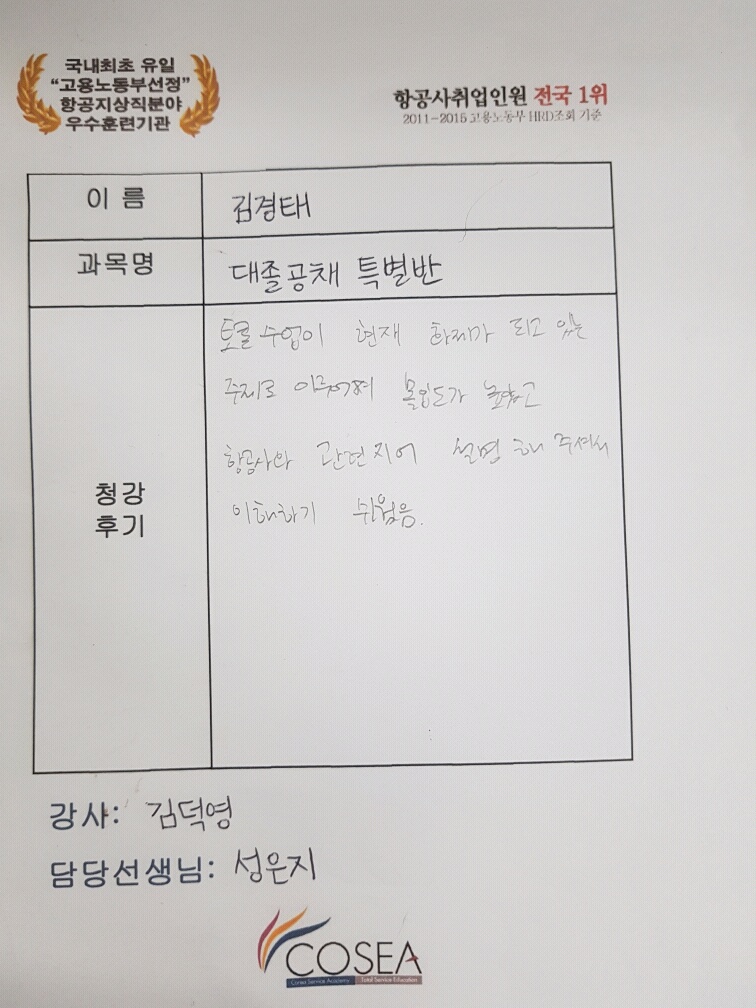 국내최초 유일
"고용노동부선정"
항공지상직분야
우수훈련기관
항공사취업인원 전국 1위
2011-2015 고용노동부 HRD조회 기준
이 름
김경태
과목명
대졸공채 특별반
청강
후기
토론 수업이 현재 화제가 되고 있는
주제로 이루어져 몰입도가 높았고
항공사와 관련지어 설명 해 주셔서
이해하기 쉬웠음.
강사: 김덕영
담당선생님: 성은지
COSEA
Cosea Service Academy Total Service Education